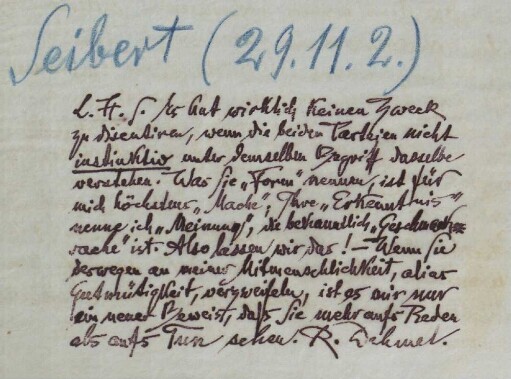 Seibert (29.11.2.)
L. H. S. Es hat wirklich keinen Zweck
zu discutiren, wenn die beiden Parteien nicht
instinktiv unter demselben Begriff dasselbe
verstehen. Was Sie „Form" nennen, ist für
mich höchstens „Mache", Ihre „Erkenntnis"
nenne ich „Meinung", die bekanntlich „Geschmacks-
sache" ist. Also lassen wir das! — Wenn Sie
deswegen an meiner Mitmenschlichkeit, alias
Gutmütigkeit, verzweifeln, ist es mir nur
ein neuer Beweis, daß Sie mehr aufs Reden
als aufs Tun sehen. R. Dehmel.